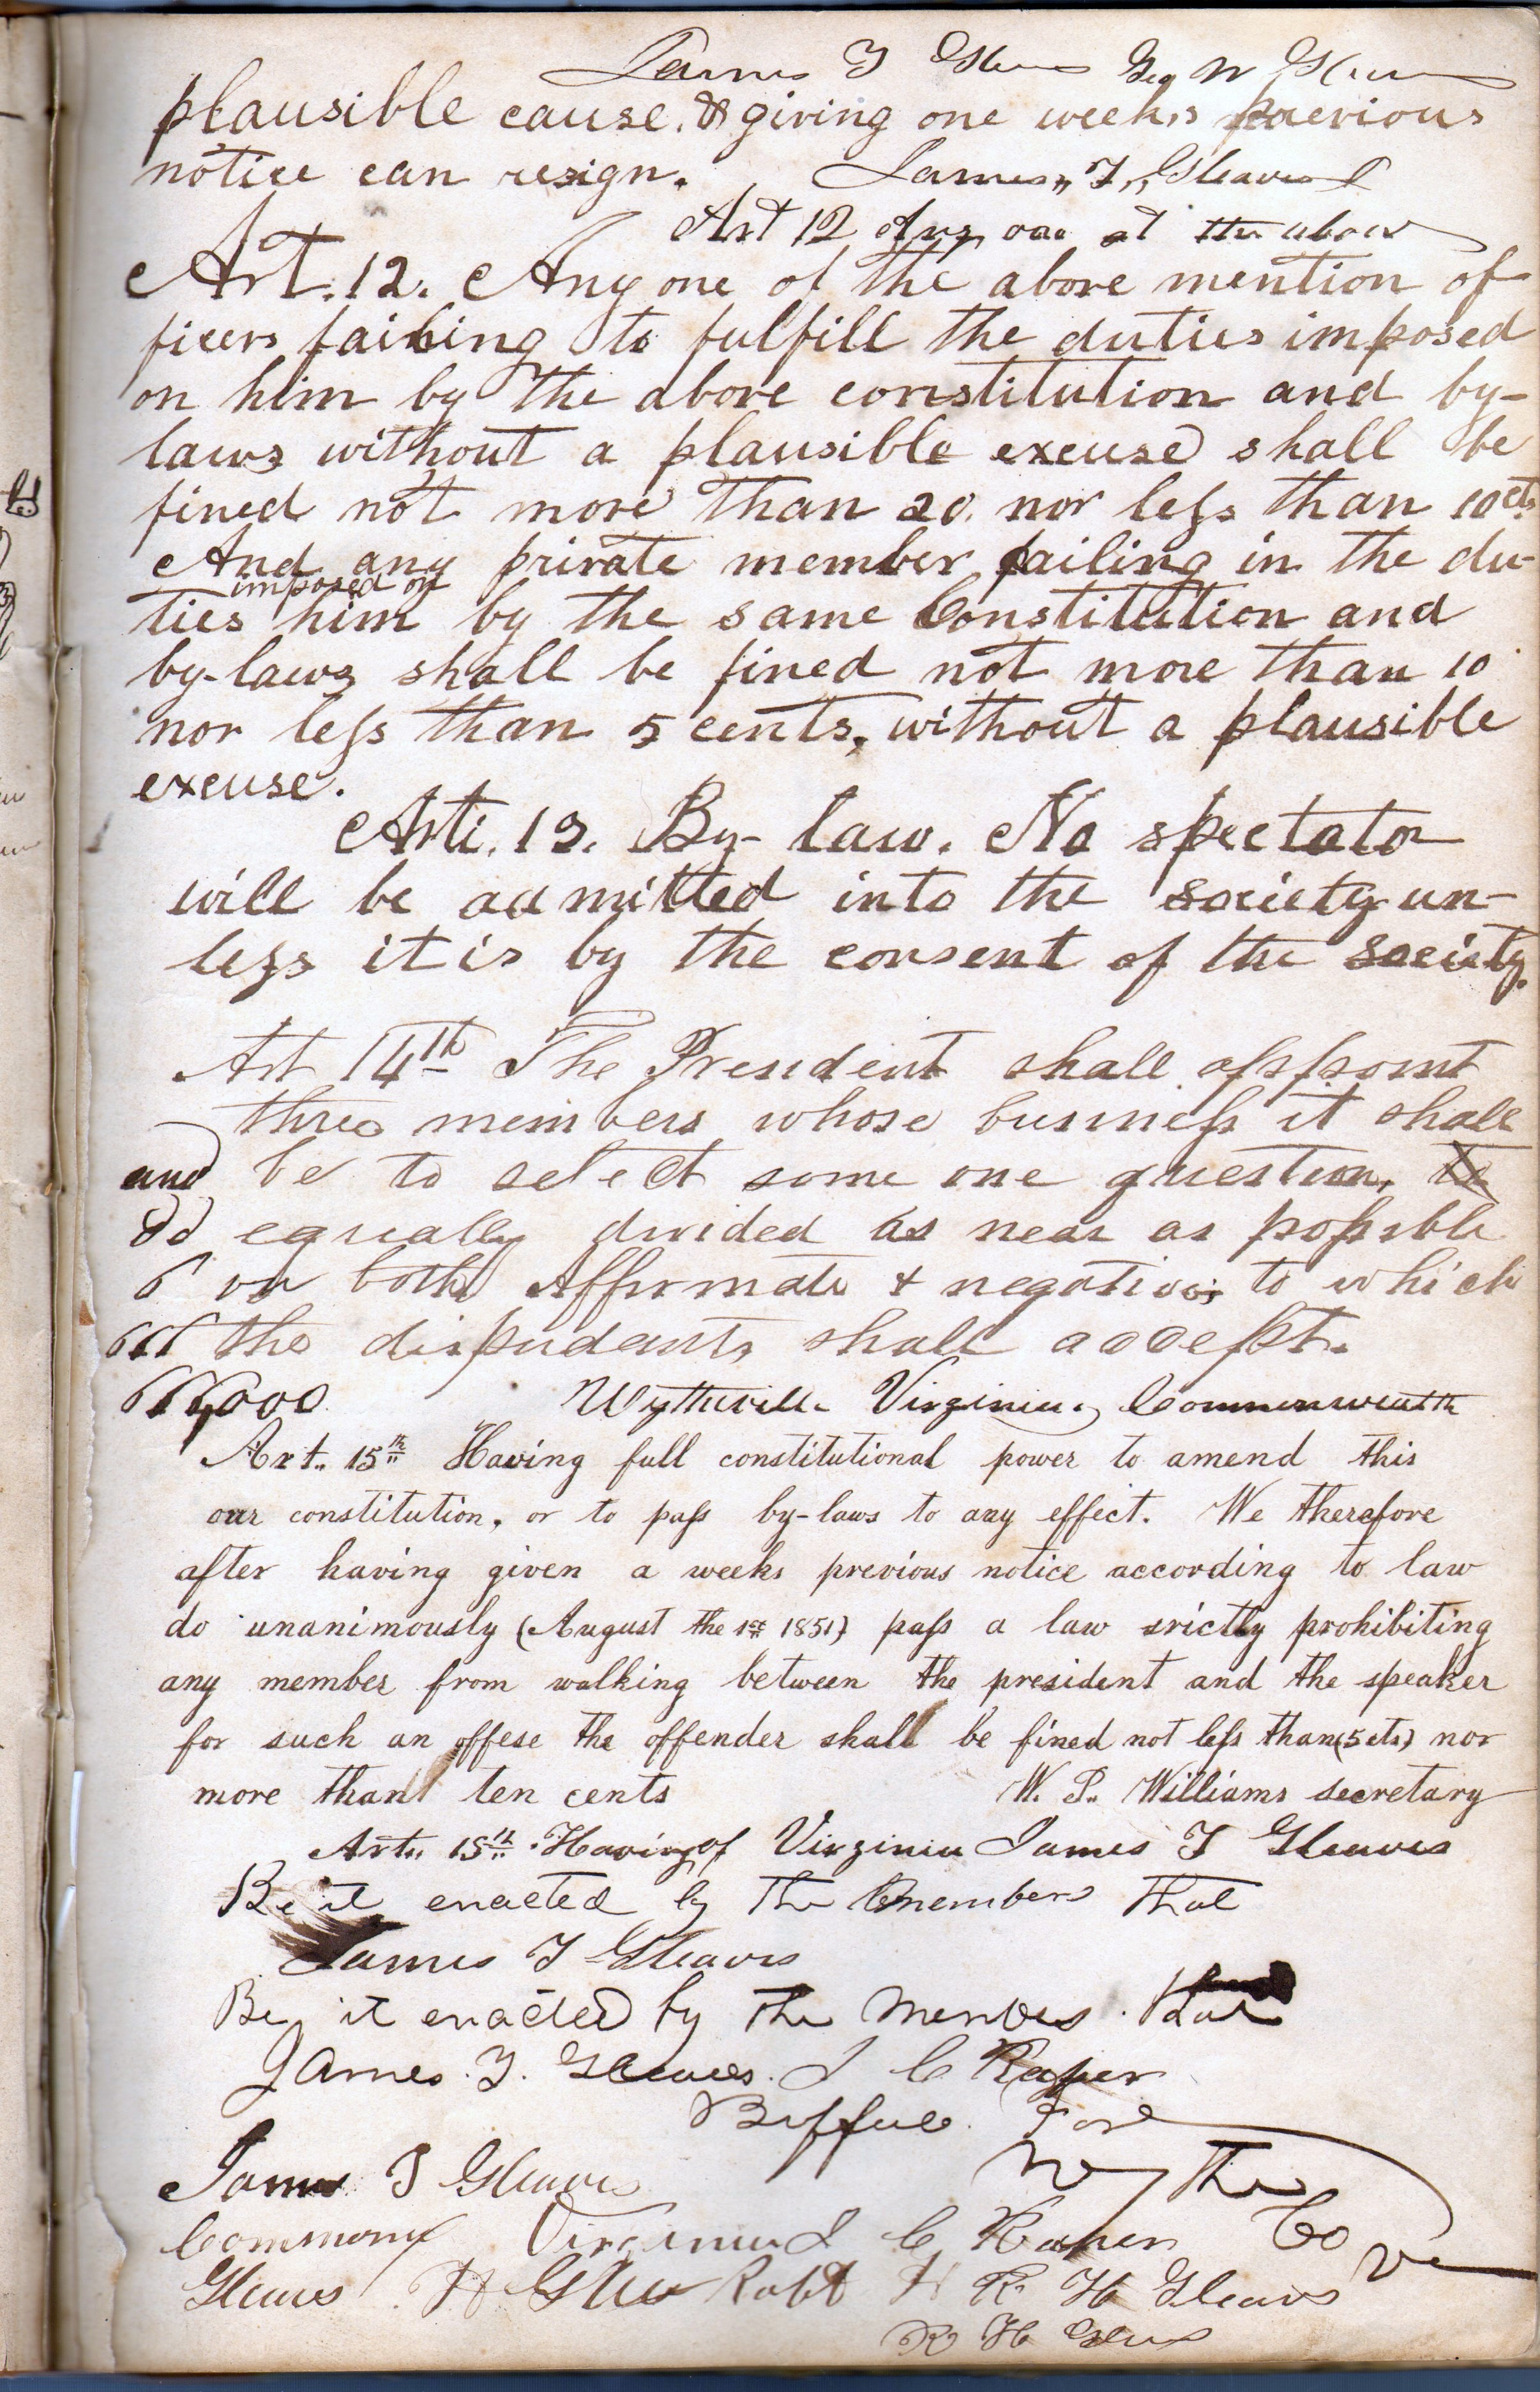 James T Gleaves Geo W Gleaves
plausible cause. & giving one weeks praevious
notice can resign. James,, T,, Gleaves
Art 12 Any one of the above
Art. 12. Any one of the above mention of
ficers faihing to fulfill the duties imposed
on him by the above constitution and by-
laws without a plausible excuse shall be
fined not more than 20. nor less than 10cts
And any private member failing in the du-
imposed on
ties him by the same Constitution and
by-laws shall be fined not more than 10
nor less than 5 cents, without a plausible
excuse.
Arti. 13. By-law. No spectator
will be admitted into the society un-
less it is by the consent of the society.
Art 14th The President shall appoint
three members whose business it shall
and be to select some one question, to
equally divided as near as possible
on both Affirmate & negative to which
the disputants shall accept.
Wytheville Virginia. Commonwealth
Art. 15th Having full constitutional power to amend this
our constitution, or to pass by-laws to any effect. We therefore
after having given a weeks previous notice according to law
do unanimously (August the 1st 1851) pass a law srictly prohibiting
any member from walking between the president and the speaker
for such an offese the offender shall be fined not less than (5 cts) nor
more than ten cents W. P. Williams secretary
Art,, 15th Having of Virginia James T Gleaves
Be it enacted by the members that
James T Gleaves
Be it enacted by the members that
James. T. Gleaves. J C Raper
James T Gleaves Wythe
Virginia J C Raper Co
Gleaves H Robt H R H Gleaves Va
R H